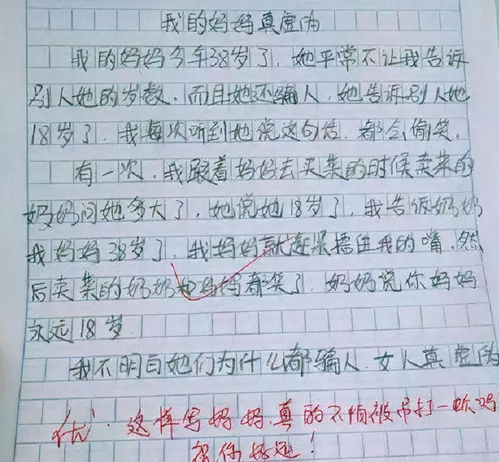 我的妈妈真虚伪
我的妈妈今年38岁了，她平常不让我告诉
别人她的岁数，而且她还骗人，她告诉别人她
18岁了，我每次听到她说这句话，都会偷笑。
有一次，我跟着妈妈去买菜的时候卖菜的
奶奶问她多大了，她说她18岁了，我告诉奶奶
我妈妈38岁了，我妈妈就赶紧捂住我的嘴，然
后卖菜的奶奶和妈妈都笑了，奶奶说你妈妈
永远18岁
我不明白她们为什么都骗人，女人真虚伪
优·这样写妈妈，真的不怕被吊打一顿吗
祝你好运！